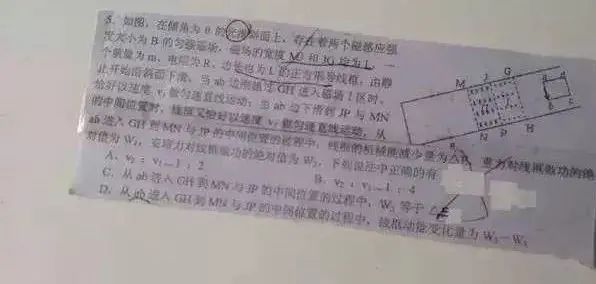 8. 如图, 在倾角为 θ 的光滑斜面上, 存在着两个磁感应强
度大小为 B 的匀强磁场, 磁场的宽度 MJ 和 JG 均为 L, 一
个质量为 m、电阻为 R、边长也为 L 的正方形导线框, 由静
止开始沿斜面下滑, 当 ab 边刚越过 GH 进入磁场 I 区时,
恰好以速度 v₁ 做匀速直线运动; 当 ab 边下滑到 JP 与 MN
的中间位置时, 线框又恰好以速度 v₂ 做匀速直线运动, 从
ab 进入 GH 到 MN 与 JP 的中间位置的过程中, 线框的机械能减少量为 重力对线框做功的绝
对值为 W₁, 安培力对线框做功的绝对值为 W₂, 下列说法中正确的有
A. v₂ : v₁=1 : 2
B. v₂ : v₁=1 : 4
C. 从 ab 进入 GH 到 MN 与 JP 的中间位置的过程中, W₂ 等于
D. 从 ab 进入 GH 到 MN 与 JP 的中间位置的过程中, 线框动能变化量为 W₁-W₂
M J G
N P H